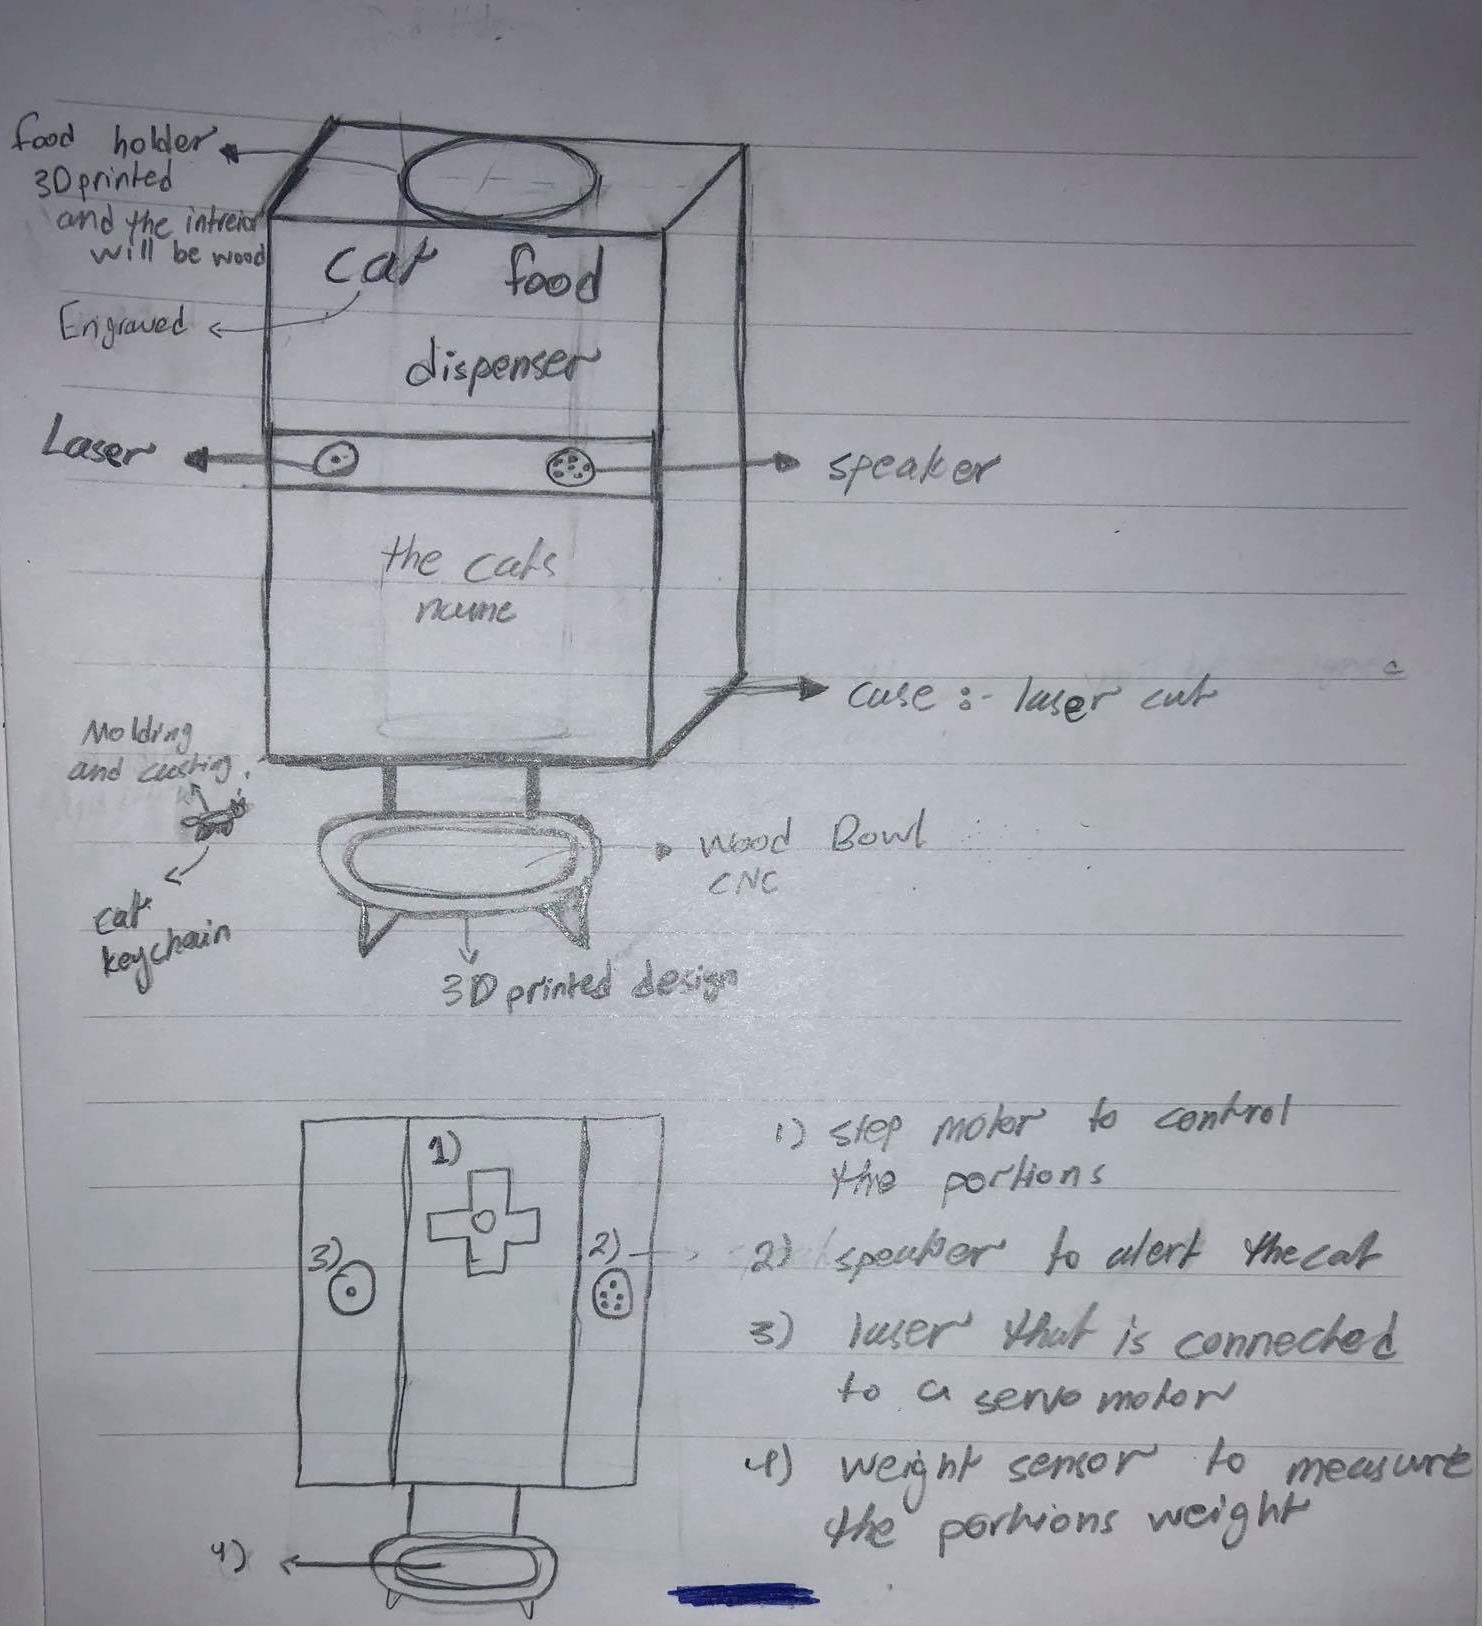 food holder
3D printed
and the intreior
will be wood
cat food
dispenser
Engraved
Laser
speaker
the cats
name
case :- laser cut
Molding
and casting.
cat
keychain
Wood Bowl
CNC
3D printed design
1)
2)
3)
4)
1) step motor to control
the portions
2) speaker to alert the cat
3) laser that is connected
to a servo motor
4) weight sensor to measure
the portions weight